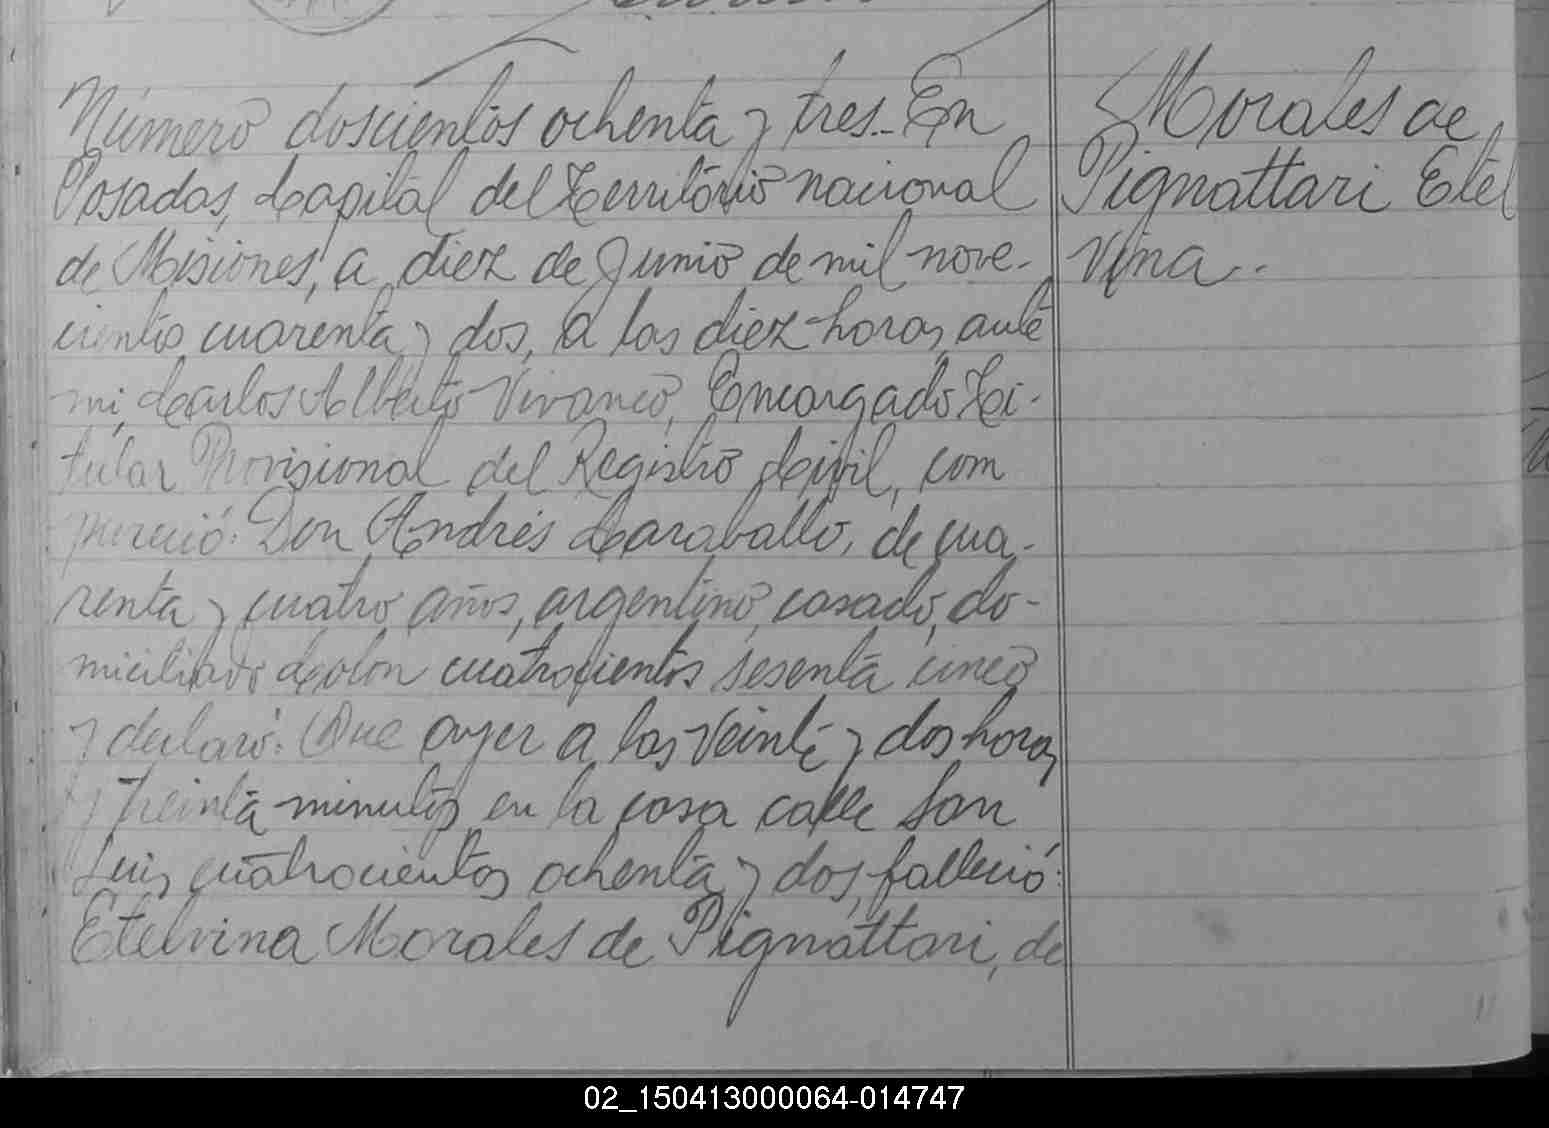 Número doscientos ochenta y tres.- En
Posadas, Capital del Territorio nacional
de Misiones, a diez de Junio de mil nove-
cientos cuarenta y dos, a las diez horas, ante
mi, Carlos Alberto Vivanco, Encargado Ti-
tular Provisional del Registro Civil, com
pareció: Don Andrés Caraballo, de cua-
renta y cuatro años, argentino, casado, do-
miciliado Colon cuatrocientos sesenta cinco
y declaró: Que ayer a las veinte y dos horas
y treinta minutos en la casa calle San
Luis cuatrocientos ochenta y dos, falleció:
Etelvina Morales de Pignattari, de
Morales de
Pignattari Etel
vina.-
02_150413000064-014747